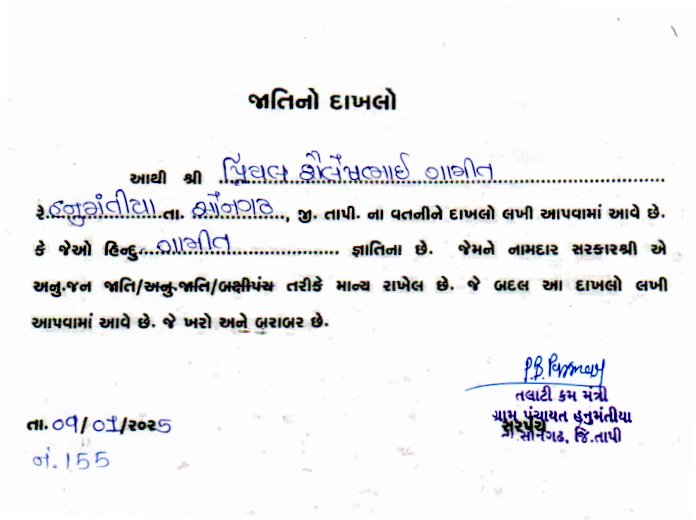 જાતિનો દાખલો
આથી શ્રી પ્રિયલ શૈલેષભાઈ ગામીત
રે. હનુમંતીયા તા. સોનગઢ, જી. તાપી. ના વતનીને દાખલો લખી આપવામાં આવે છે.
કે જેઓ હિન્દુ ગામીત જ્ઞાતિના છે. જેમને નામદાર સરકારશ્રી એ
અનુ.જન જાતિ/અનુ.જાતિ/બક્ષીપંચ તરીકે માન્ય રાખેલ છે. જે બદલ આ દાખલો લખી
આપવામાં આવે છે. જે ખરો અને બરાબર છે.
તલાટી કમ મંત્રી
ગ્રામ પંચાયત હનુમંતીયા
સરપંચ
સોનગઢ, જિ.તાપી
તા. 09/01/૨૦૨5
નં. 155